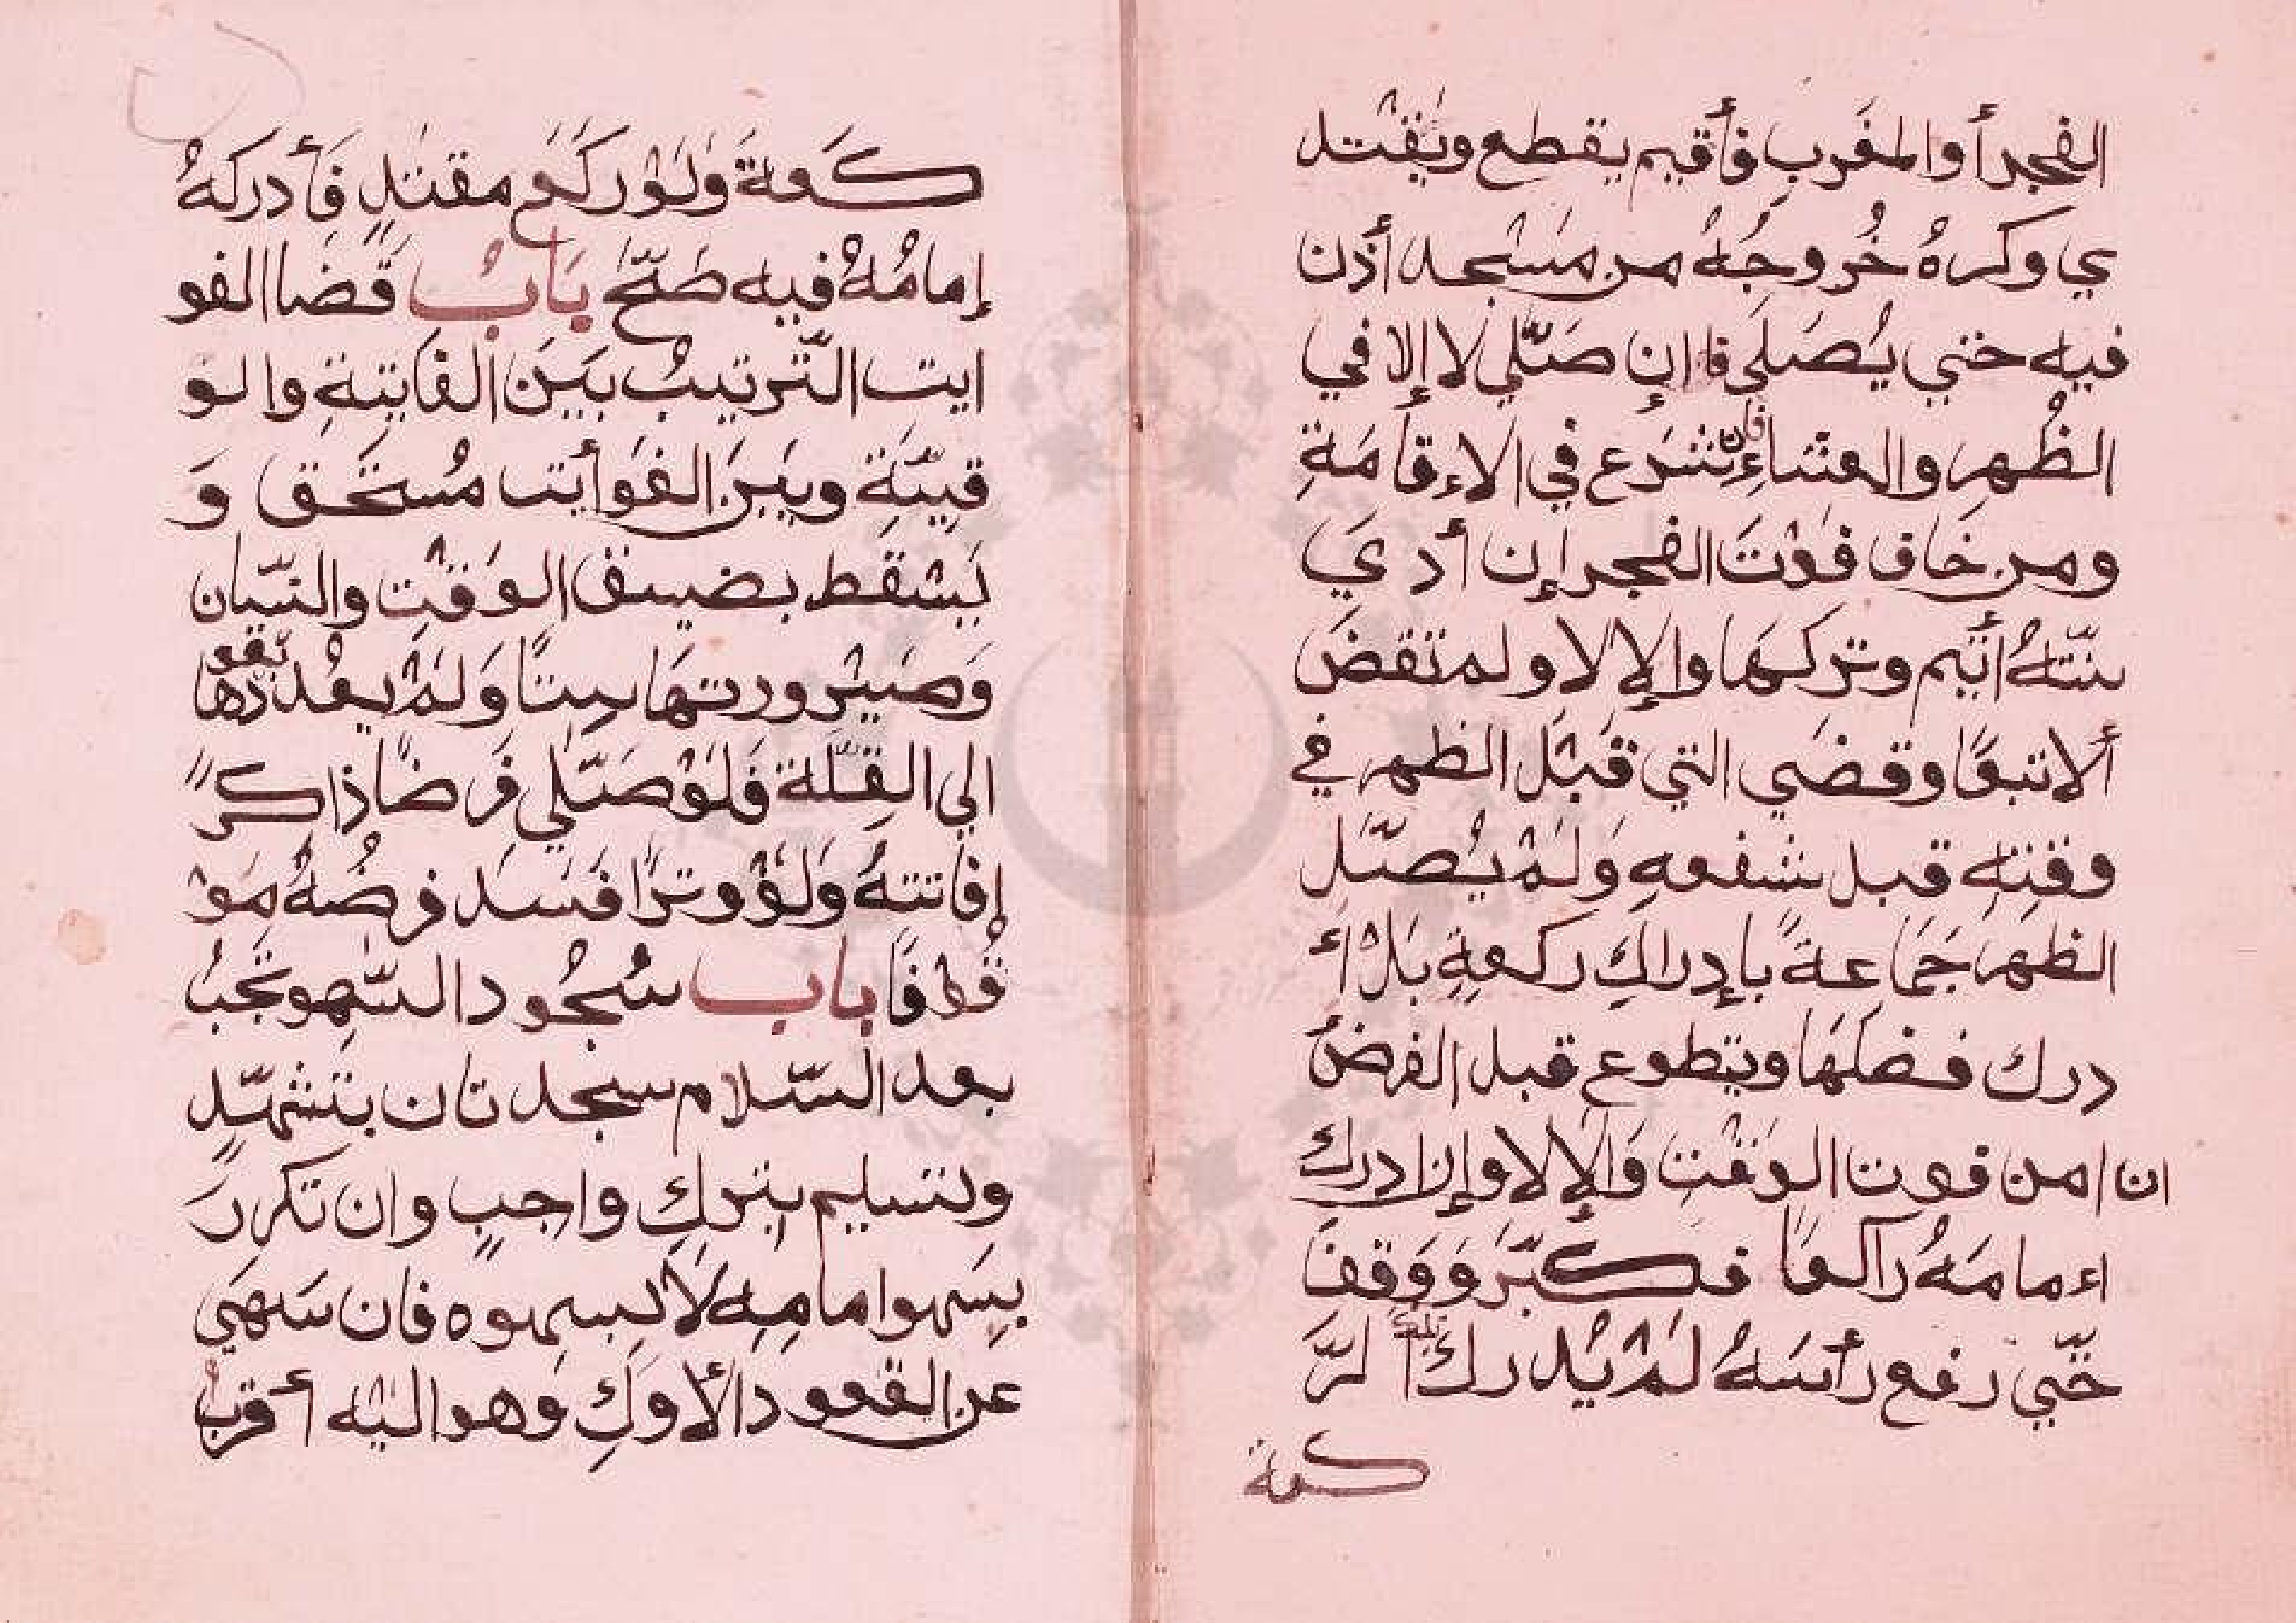 الفجر أو المغرب فأقيم يقطع ويقتد
ي وكره خُروجُهُ من مَسْجد أذن
فيه حتي يُصَلي فاإن صَلّي لا إلا في
الظُهرِ والعشاءِ فان شَرَع في الاءقامَةِ
ومن خَاف فوْتَ الفجر إن أدي
سنّتهُ أتيم وتركهَا والإ لا ولم تقض
ألا تبعًا وقضي التي قبْل الظهر في
وقتِهِ قبل شفعهِ وَلمْ يُصَلّ
الظهر جَمَاعةً بإدراكِ ركعةٍ بَلْ أ
درك فضلَهَا ويتطوع قبل الفرضُ
ان امن فوت الوَقْتِ وَالإ لا وإن ادرك
اءمامَهُ راكعًا فكبّر وَوَقفَ
حَتّي رفع رأسَهُ لمْ يُدرك تلك الرَّ
كعة
كَعةَ وَلوْ رَكَع مقتدٍ فَأدركهُ
إمامُهُ فيه صَحّ بَابُ قَضا الفو
ايت التّرتيبُ بَيَن الفَايتةِ والو
قتِيّةِ وبيَن الفوَأيت مُستحَق وَ
يَسْقط بضيق الوَقْتِ والنسّيان
وَصَيْرورتهَا ستًا وَلمْ يعُد بعَودهَا
الي القِلّة فَلوْ صَلّي فَرضًا ذاكرً
إفاتتهُ وَلوْ وترًا فسَد فرضُهُ مَوْ
قُوفًا باب سُجُود السّهو تَجبُ
بعد السّلام سجدتان بتشهّدٍ
وتسليم بتركِ واجبٍ وان تكررَ
بِسَهوا مامِهِ لاَ بسهوه فان سَهَي
عن القعود الأولِ وهو اليْه أقربُ